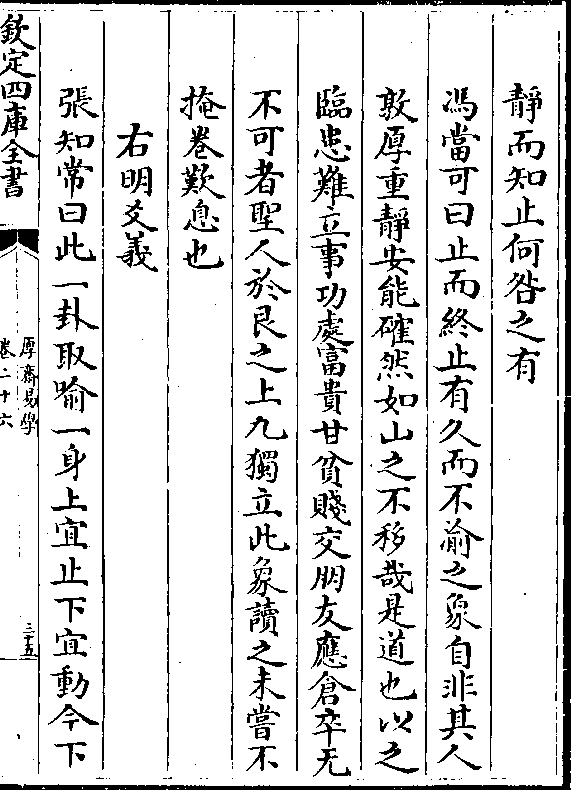 靜而知止何咎之有
馮當可曰止而終止有久而不渝之象自非其人
敦厚重靜安能確然如山之不移哉是道也以之
臨患難立事功處富貴甘貧賤交朋友應倉卒无
不可者聖人於艮之上九獨立此象讀之未嘗不
掩卷歎息也
右明爻義
張知常曰此一卦取喻一身上宜止下宜動今下
欽定四庫全書
厚齋易學
卷二十六
三十五